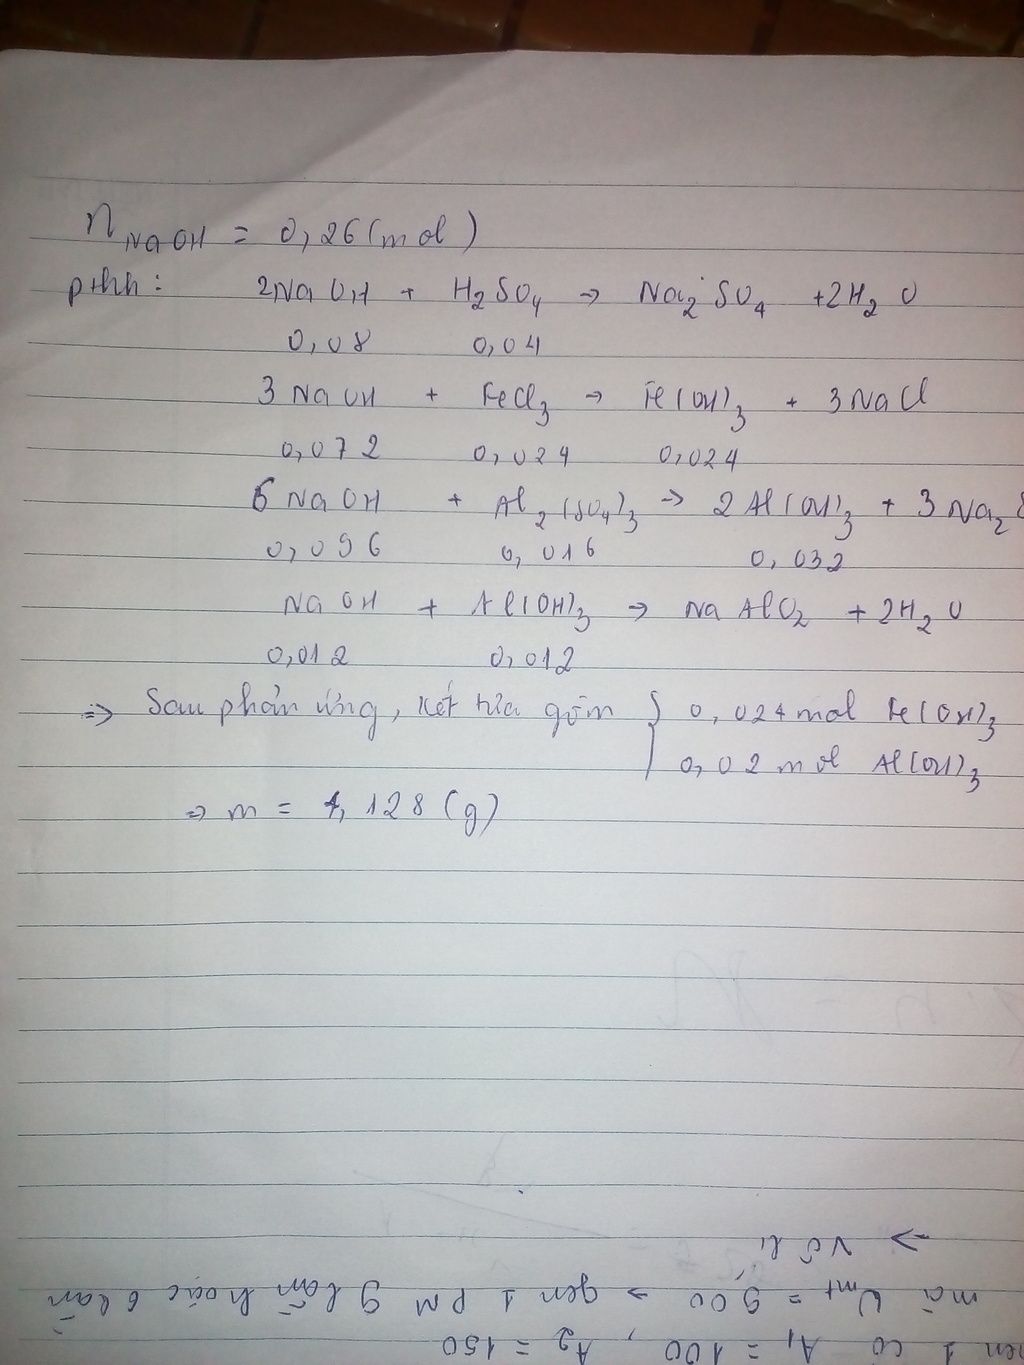 n NaOH = 0,26 (mol)
pthh: 2NaOH + H2SO4 → Na2SO4 + 2H2O
0,08 0,04
3NaOH + FeCl3 → Fe(OH)3 + 3NaCl
0,072 0,024 0,024
6NaOH + Al2(SO4)3 → 2Al(OH)3 + 3Na2
0,096 0,016 0,032
NaOH + Al(OH)3 → NaAlO2 + 2H2O
0,012 0,012
=> Sau phản ứng, kết tủa gồm { 0,024 mol Fe(OH)3
0,02 mol Al(OH)3
=> m = 4,128 (g)
1 có A1 = 100, A2 = 150
mà Umt = 900 → gen 1 PM 9 lần hoặc 6 lần
→ vô lí